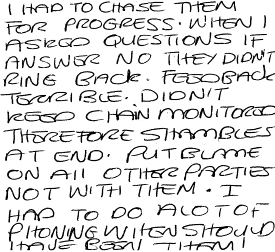 I HAD TO CHASE THEM
FOR PROGRESS. WHEN I
ASKED QUESTIONS IF
ANSWER NO THEY DIDN'T
RING BACK. FEEDBACK
TERRIBLE. DIDN'T
KEEP CHAIN MONITORED
THEREFORE SHAMBLES
AT END. PUT BLAME
ON All OTHER PARTIES
NOT WITH THEM. I
HAD TO DO A LOT OF
PHONING WHEN SHOULD
HAVE BEEN THEM!